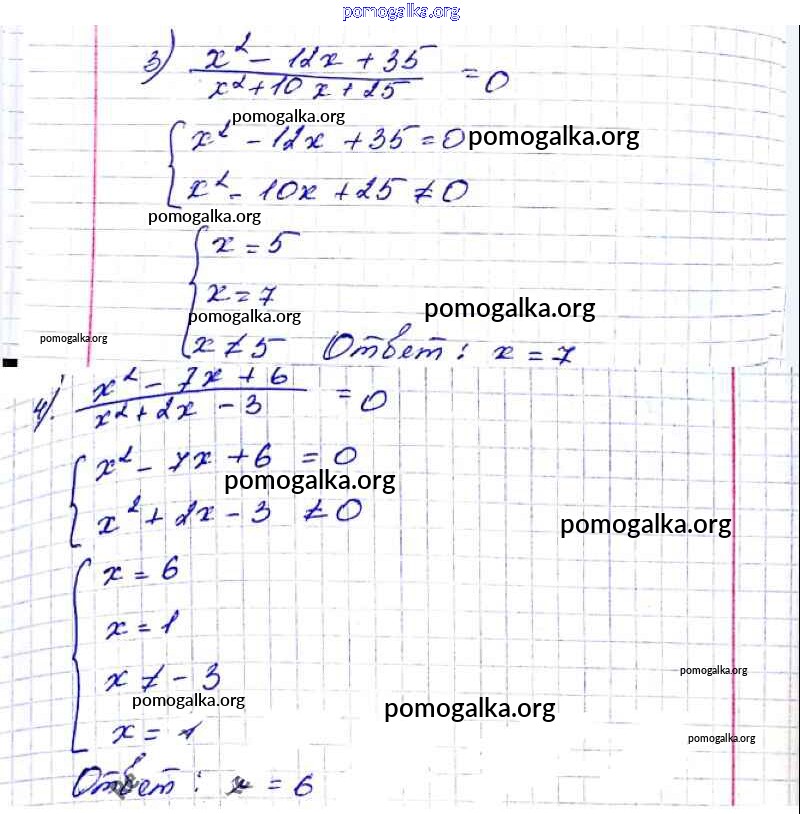 pomogalka.org
3) x² - 12x + 35 / x² + 10x + 25 = 0
pomogalka.org
{ x² - 12x + 35 = 0 pomogalka.org
x² - 10x + 25 ≠ 0
pomogalka.org
{ x = 5
x = 7
pomogalka.org pomogalka.org
pomogalka.org
x ≠ 5 Ответ: x = 7
4) x² - 7x + 6 / x² + 2x - 3 = 0
{ x² - 7x + 6 = 0
pomogalka.org
x² + 2x - 3 ≠ 0
pomogalka.org
{ x = 6
x = 1
x ≠ - 3
pomogalka.org
pomogalka.org
pomogalka.org
x = 1
pomogalka.org
Ответ: x = 6